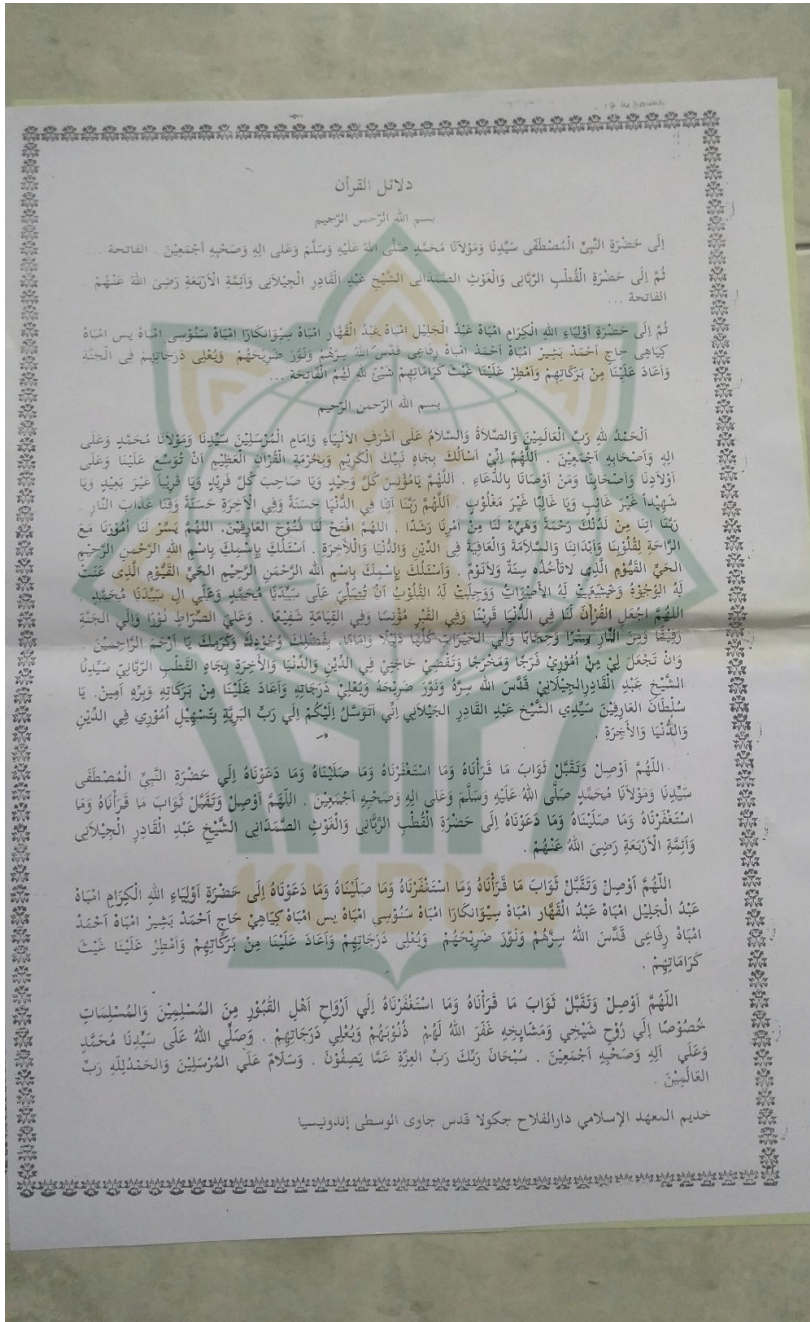 دلائل القرأن
بسم الله الرّحمن الرّحيم
اِلَى حَضْرَةِ النَّبِىِّ الْمُصْطَفَى سَيِّدِنَا وَمَوْلَانَا مُحَمَّدٍ صَلَّى اللهُ عَلَيْهِ وَسَلَّمَ وَعَلى الِهِ وَصَحْبِهِ اَجْمَعِيْنَ . الفاتحة ...
ثُمَّ اِلَى حَضْرَةِ الْقُطْبِ الرَّبَّانِى وَالْغَوْثِ الصَّمَدَانِى الشَّيْخِ عَبْدِ الْقَادِرِ الْجِيْلَانِى وَاَئِمَّةِ الْاَرْبَعَةِ رَضِىَ اللهُ عَنْهُمْ .
الفاتحة ...
ثُمَّ اِلَى حَضْرَةِ اَوْلِيَاءِ اللهِ الْكِرَامِ امْبَاهْ عَبْدُ الْجَلِيْل امْبَاهْ عَبْدُ الْقَهَّار امْبَاهْ سِيْوَانكَارَا امْبَاهْ سَنُوْسِى امْبَاهْ يس امْبَاهْ
كِيَاهِى حَاجِ اَحْمَدْ بَشِيْر امْبَاهْ اَحْمَدْ امْبَاهْ رِفَاعِى قَدَّسَ اللهُ سِرَّهُمْ وَنَوَّرَ ضَرِيْحَهُمْ وَيُعْلِى دَرَجَاتِهِمْ فِى الْجَنَّة
وَاَعَادَ عَلَيْنَا مِنْ بَرَكَاتِهِمْ وَاَمْطِرْ عَلَيْنَا غَيْثَ كَرَامَاتِهِمْ شَيْئٌ لله لَهُمُ الْفَاتحَة ...
بسم الله الرّحمن الرّحيم
اَلْحَمْدُ للهِ رَبِّ الْعَالَمِيْنَ وَالصَّلَاةُ وَالسَّلَامُ عَلَى اَشْرَفِ الاَنْبِيَاءِ وَاِمَامِ الْمُرْسَلِيْنَ سَيِّدِنَا وَمَوْلَانَا مُحَمَّدٍ وَعَلَى
الِهِ وَاَصْحَابِهِ اَجْمَعِيْنَ . اَللّهُمَّ اِنِّيْ اَسْأَلُكَ بِجَاهِ نَبِيِّكَ الْكَرِيْمِ وَبِحُرْمَةِ الْقُرْآنِ الْعَظِيْمِ اَنْ تُوَسِّعَ عَلَيْنَا وَعَلَى
اَوْلَادِنَا وَاَصْحَابِنَا وَمَنْ اَوْصَانَا بِالدُّعَاءِ . اَللّهُمَّ يَامُؤْنِسَ كُلِّ وَحِيْدٍ وَيَا صَاحِبَ كُلِّ فَرِيْدٍ وَيَا قَرِيْباً غَيْرَ بَعِيْدٍ وَيَا
شَهِيْداً غَيْرَ غَائِبٍ وَيَا غَالِبًا غَيْرَ مَغْلُوْبٍ . اَللّهُمَّ رَبَّنَا اَتِنَا فِي الدُّنْيَا حَسَنَةً وَفِي الآخِرَةِ حَسَنَةً وَقِنَا عَذَابَ النَّارِ .
رَبَّنَا اتِنَا مِنْ لَدُنْكَ رَحْمَةً وَهَيِّءْ لَنَا مِنْ اَمْرِنَا رَشَدًا . اللهم افْتَحْ لَنَا فُتُوْحَ العَارِفِيْنَ. اللهم يَسِّرْ لَنَا اُمُوْرَنَا مَعَ
الرَّاحَةِ لِقُلُوْبِنَا وَاَبْدَانِنَا وَالسَّلَامَةَ وَالْعَافِيَةَ فِى الدِّيْنِ وَالدُّنْيَا وَالْلآخِرَةِ . اَسْئَلُكَ بِاِسْمِكَ بِاِسْمِ اللهِ الرَّحْمنِ الرَّحِيْمِ
الحَيِّ القَيُّوْمِ الَّذِى لاتَأْخُذُه سِنَةٌ وَلاَنَوْمٌ . وَاَسْئَلُكَ بِاِسْمِكَ بِاِسْمِ الله الرَّحْمنِ الرَّحِيْمِ الحَيِّ القَيُّوْمِ الَّذِى عَنَتْ
لَهُ الوُجُوْهُ وَخَشَعَتْ لَهُ الأَصْوَاتُ وَوَجِلَتْ لَهُ القُلُوْبُ اَنْ تُصَلِّيَ عَلَى سَيِّدِنَا مُحَمَّدٍ وَعَلَي الِ سَيِّدِنَا مُحَمَّدٍ
اللهم اجْعَلِ القُرْآنَ لَنَا فِي الدُّنْيَا قَرِيْنًا وَفِي القَبْرِ مُؤْنِسًا وَفِي القِيَامَةِ شَفِيْعًا . وَعَلَي الصِّرَاطِ نُوْرًا وَاِلَي الجَنَّةِ
رَفِيْقًا وَمِنَ النَّارِ سِتْرًا وَحِجَابًا وَاِلَي الْخَيْرَاتِ كُلِّهَا دَلِيْلًا وَاِمَامًا. بِفَضْلِكَ وَجُوْدِكَ وَكَرَمِكَ يَا اَرْحَمَ الرَّاحِمِيْنَ
وَاَنْ تَجْعَلَ لِيْ مِنْ اُمُوْرِيْ فَرَجًا وَمَخْرَجًا وَتَقْضِيَ حَاجَتِيْ فِي الدِّيْنِ وَالدُّنْيَا وَالأَخِرَةِ بِجَاهِ القُطْبِ الرَّبَّانِيّ سَيِّدِنَا
الشَّيْخِ عَبْدِ القَادِرِالجِيْلَانِيْ قَدَّسَ الله سِرَّهُ وَنَوَّرَ ضَرِيْحَهُ وَيُعْلِيْ دَرَجَاتِهِ وَاَعَادَ عَلَيْنَا مِنْ بَرَكَاتِهِ وَبِرِّهِ اَمِيْنَ. يَا
سُلْطَانَ العَارِفِيْنَ سَيِّدِي الشَّيْخ عَبْدِ القَادِرِ الجَيْلَانِي اِنِّي اَتَوَسَّلُ اِلَيْكُمْ اِلَي رَبِّ البَرِيَّةِ بِتَسْهِيْلِ اُمُوْرِي فِي الدِّيْنِ
وَالدُّنْيَا وَالأَخِرَةِ .
اللهُمَّ اَوْصِلْ وَتَقَبَّلْ ثَوَابَ مَا قَرَأْنَاهُ وَمَا اسْتَغْفَرْنَاهُ وَمَا صَلَّيْنَاهُ وَمَا دَعَوْنَاهُ اِلَي حَضْرَةِ النَّبِيِّ الْمُصْطَفَى
سَيِّدِنَا وَمَوْلَانَا مُحَمَّدٍ صَلَّى اللهُ عَلَيْهِ وَسَلَّمَ وَعَلَى الِهِ وَصَحْبِهِ اَجْمَعِيْنَ . اللهُمَّ اَوْصِلْ وَتَقَبَّلْ ثَوَابَ مَا قَرَأْنَاهُ وَمَا
اسْتَغْفَرْنَاهُ وَمَا صَلَّيْنَاهُ وَمَا دَعَوْنَاهُ اِلَى حَضْرَةِ الْقُطْبِ الرَّبَّانِى وَالْغَوْثِ الصَّمَدَانِى الشَّيْخِ عَبْدِ الْقَادِرِ الْجِيْلَانِى
وَاَئِمَّةِ الْاَرْبَعَةِ رَضِىَ اللهُ عَنْهُمْ .
اللهُمَّ اَوْصِلْ وَتَقَبَّلْ ثَوَابَ مَا قَرَأْنَاهُ وَمَا اسْتَغْفَرْنَاهُ وَمَا صَلَّيْنَاهُ وَمَا دَعَوْنَاهُ اِلَى حَضْرَةِ اَوْلِيَاءِ اللهِ الْكِرَامِ امْبَاهْ
عَبْدُ الْجَلِيْل امْبَاهْ عَبْدُ الْقَهَّار امْبَاهْ سِيْوَانكَارَا امْبَاهْ سَنُوْسِى امْبَاهْ يس امْبَاهْ كِيَاهِيْ حَاجِ اَحْمَدْ بَشِيْر امْبَاهْ اَحْمَدْ
امْبَاهْ رِفَاعِى قَدَّسَ اللهُ سِرَّهُمْ وَنَوَّرَ ضَرِيْحَهُمْ وَيُعْلِى دَرَجَاتِهِمْ وَاَعَادَ عَلَيْنَا مِنْ بَرَكَاتِهِمْ وَاَمْطِرْ عَلَيْنَا غَيْثَ
كَرَامَاتِهِمْ .
اللهُمَّ اَوْصِلْ وَتَقَبَّلْ ثَوَابَ مَا قَرَأْنَاهُ وَمَا اسْتَغْفَرْنَاهُ اِلَي اَرْوَاحِ اَهْلِ القُبُوْرِ مِنَ المُسْلِمِيْنَ وَالْمُسْلِمَاتِ
خُصُوْصًا اِلَي رُوْحِ شَيْخِي وَمَشَايِخِهِ غَفَرَ اللهُ لَهُمْ ذُنُوْبَهُمْ وَيُعْلِي دَرَجَاتِهِمْ . وَصَلَّي اللهُ عَلَى سَيِّدِنَا مُحَمَّدٍ
وَعَلَي آلِهِ وَصَحْبِهِ اَجْمَعِيْنَ . سُبْحَانَ رَبِّكَ رَبِّ العِزَّةِ عَمَّا يَصِفُوْنَ . وَسَلَامٌ عَلَي المُرْسَلِيْنَ وَالحَمْدُلِلّهِ رَبِّ
العَالَمِيْنَ .
خديم المعهد الإسلامي دارالفلاح جكولا قدس جاوى الوسطى إندونيسيا